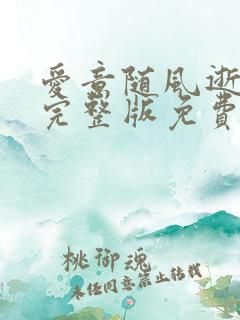 愛意随風逝
完整版免費
桃御魂
未经同意禁止转载